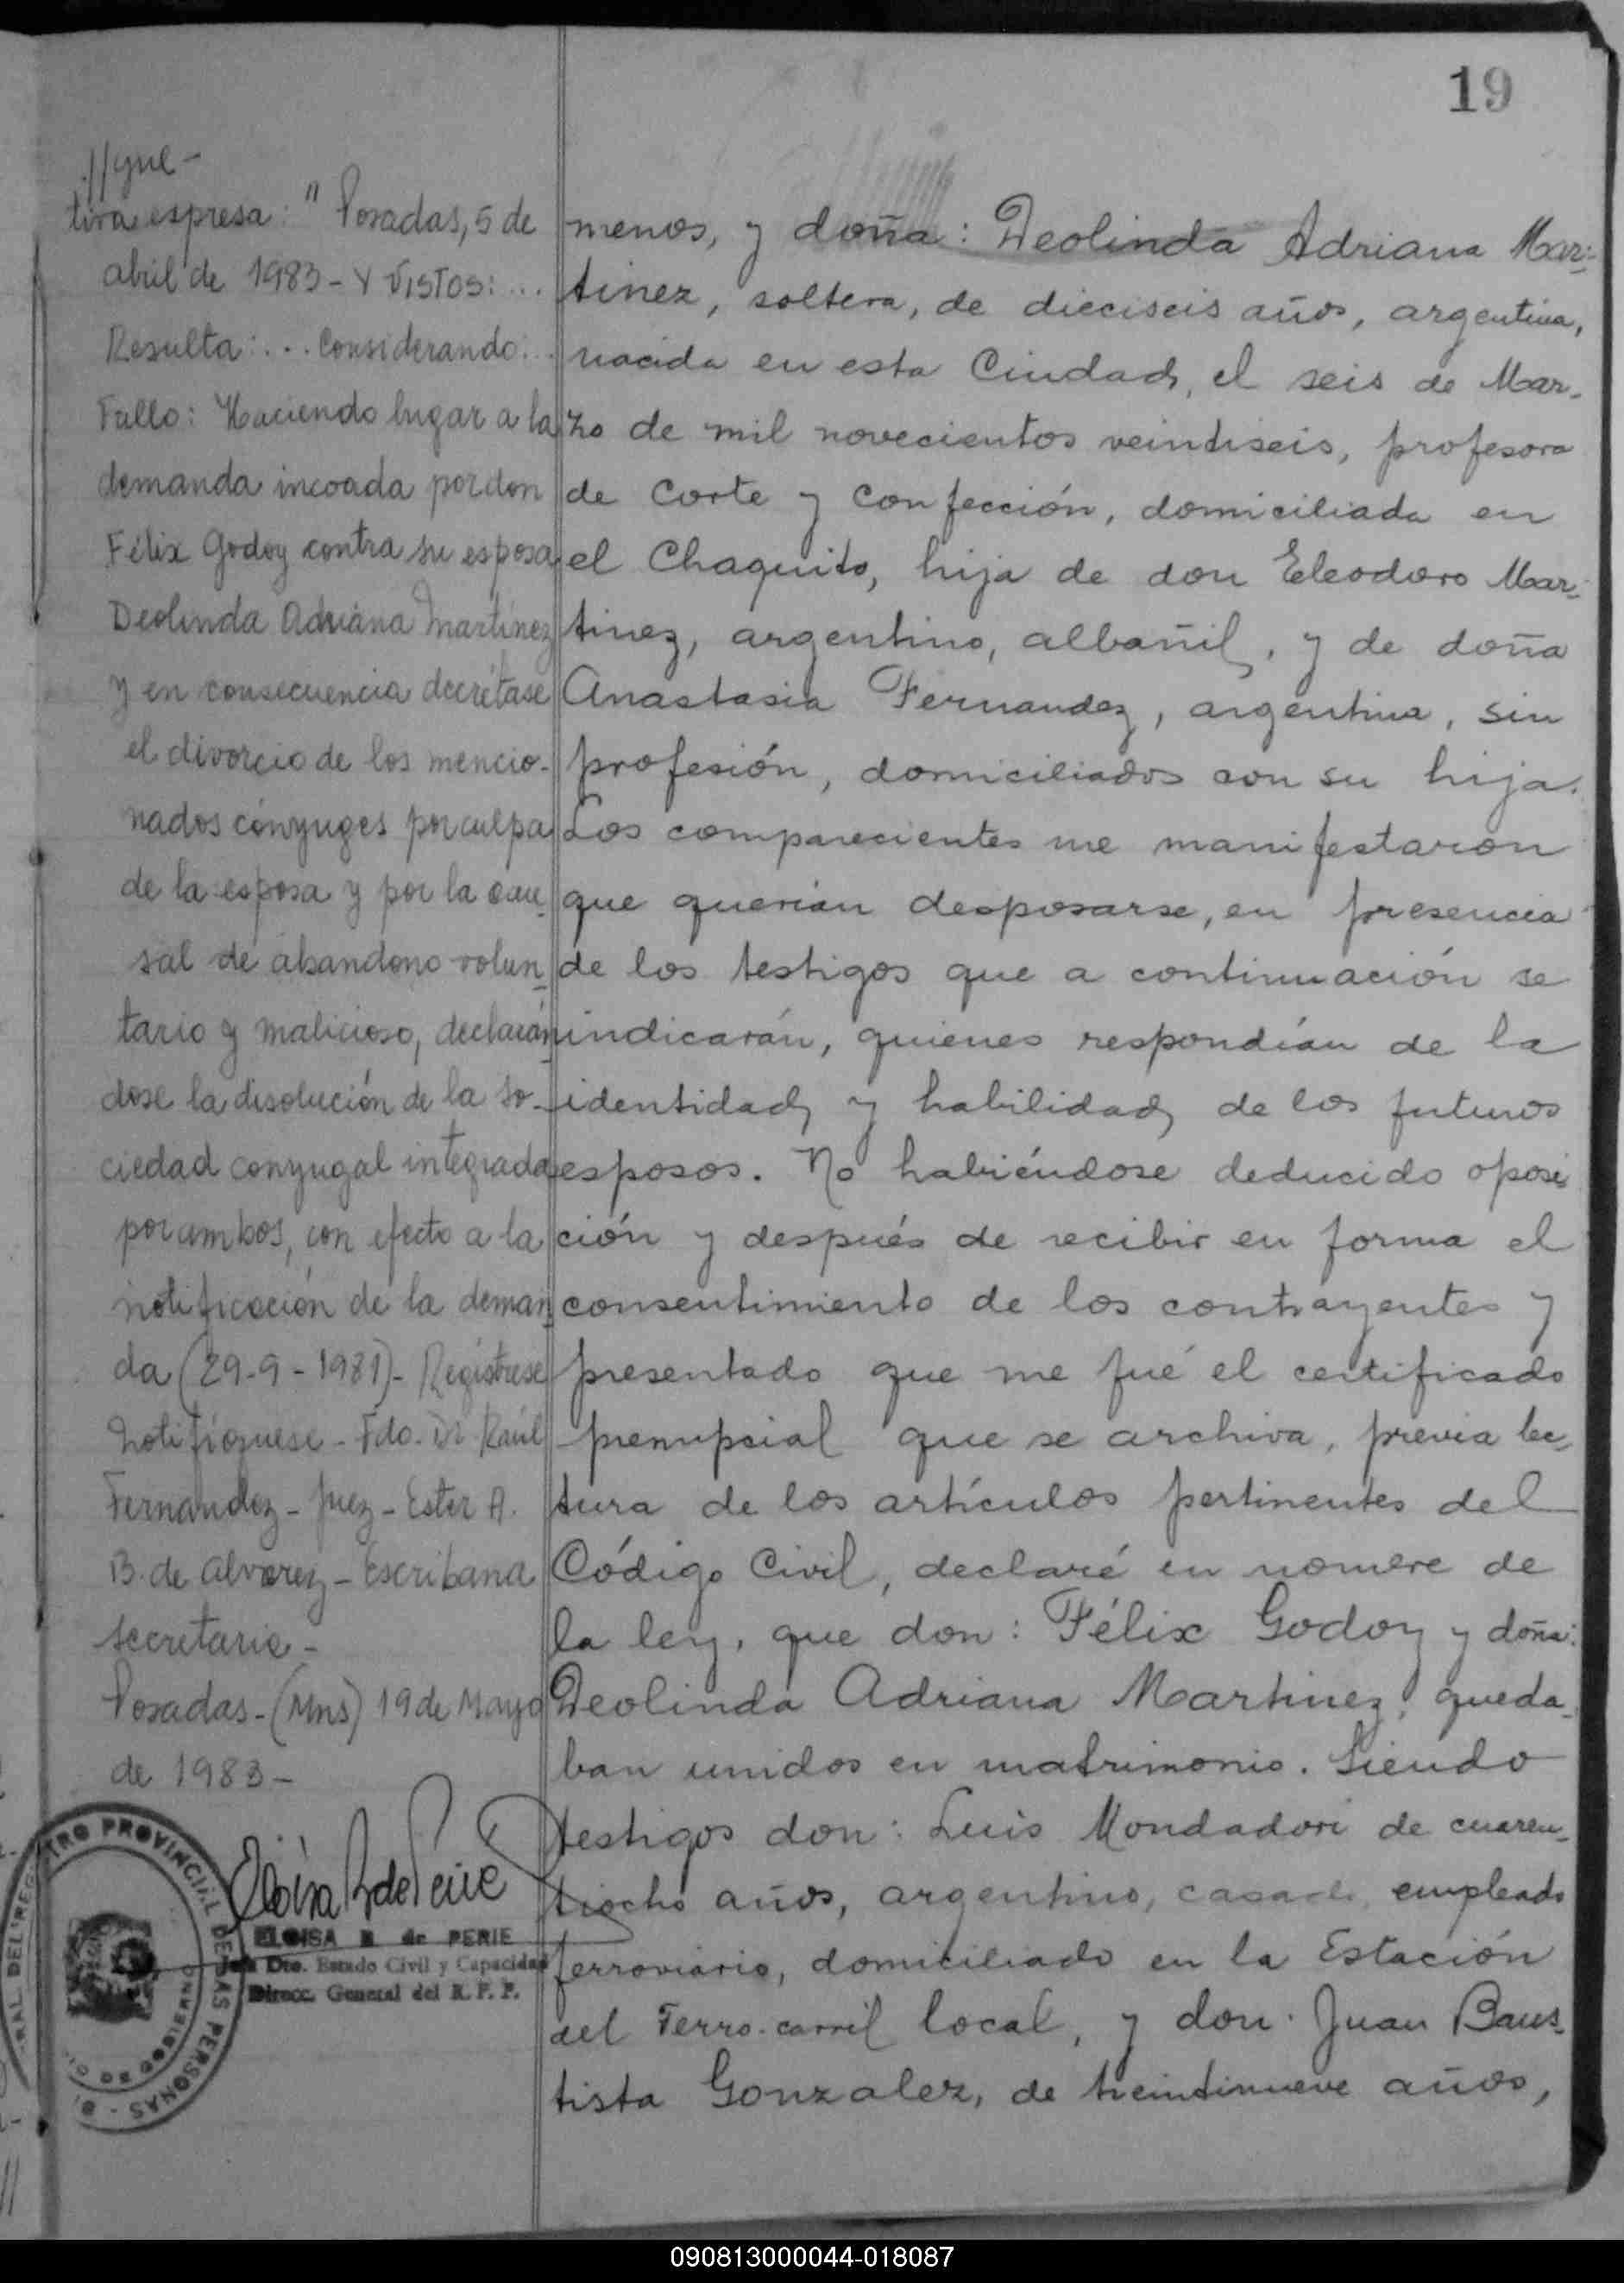 19
//que-
tiva espresa: " Posadas, 5 de
abril de 1983 - Y VISTOS: ...
Resulta: ... Considerando: ..
Fallo: Haciendo lugar a la
demanda incoada por don
Félix Godoy contra su esposa
Deolinda Adriana Martínez
y en consecuencia decrétase
el divorcio de los mencio-
nados cónyuges por culpa
de la esposa y por la cau-
sal de abandono volun-
tario y malicioso, declarán-
dose la disolución de la so-
ciedad conyugal integrada
por ambos, con efecto a la
notificación de la deman-
da (29-9-1981)- Regístrese
Notifíquese - Fdo. Dr. Raúl
Fernandez - Juez - Ester A.
B. de Alvarez - Escribana
Secretaria -
Posadas - (Mns) 19 de Mayo
de 1983 -
ELOISA R de PERIE
Jefa Dto. Estado Civil y Capacidad
Direcc. General del R. P. P.
REGISTRO PROVINCIAL DE LAS PERSONAS
menos, y doña: Deolinda Adriana Mar-
tinez, soltera, de dieciseis años, argentina,
nacida en esta Ciudad, el seis de Mar-
zo de mil novecientos veintiseis, profesora
de Corte y Confección, domiciliada en
el Chaquito, hija de don Eleodoro Mar-
tinez, argentino, albañil, y de doña
Anastasia Fernandez, argentina, sin
profesión, domiciliados con su hija.
Los comparecientes me manifestaron
que querían desposarse, en presencia
de los testigos que a continuación se
indicarán, quienes respondían de la
identidad y habilidad de los futuros
esposos. No habiéndose deducido oposi
ción y después de recibir en forma el
consentimiento de los contrayentes y
presentado que me fué el certificado
prenupcial que se archiva, previa lec-
tura de los artículos pertinentes del
Código Civil, declaré en nombre de
la ley, que don: Félix Godoy y doña:
Deolinda Adriana Martinez, queda-
ban unidos en matrimonio. Siendo
testigos don: Luis Mondadori de cuaren-
tiocho años, argentino, casado, empleado
ferroviario, domiciliado en la Estación
del Ferro-carril local, y don: Juan Baus-
tista Gonzalez, de treintinueve años,
090813000044-018087